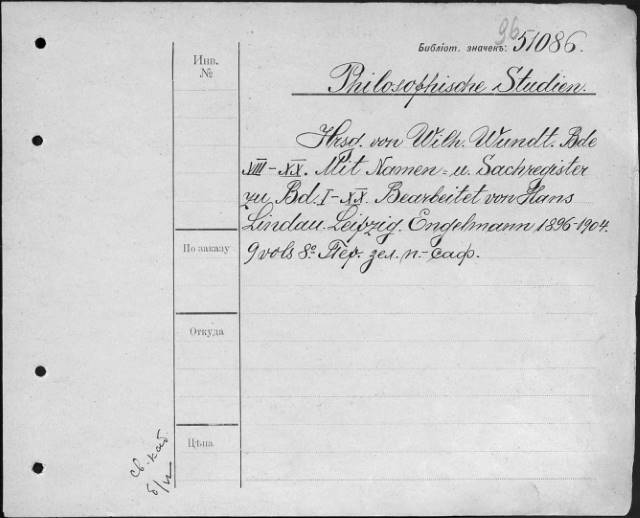 96
Библіот. значекъ: 51086.
Инв.
№
Philosophische Studien.
Hrsg. von Wilh. Wundt. Bde
XIII-XX. Mit Namen- u. Sachregister
zu Bd. I-XX. Bearbeitet von Hans
Lindau. Leipzig. Engelmann 1896-1904.
9 vols 8º Пер. зел. п.-саф.
По заказу
Откуда
Цѣна
св. кат
б/н